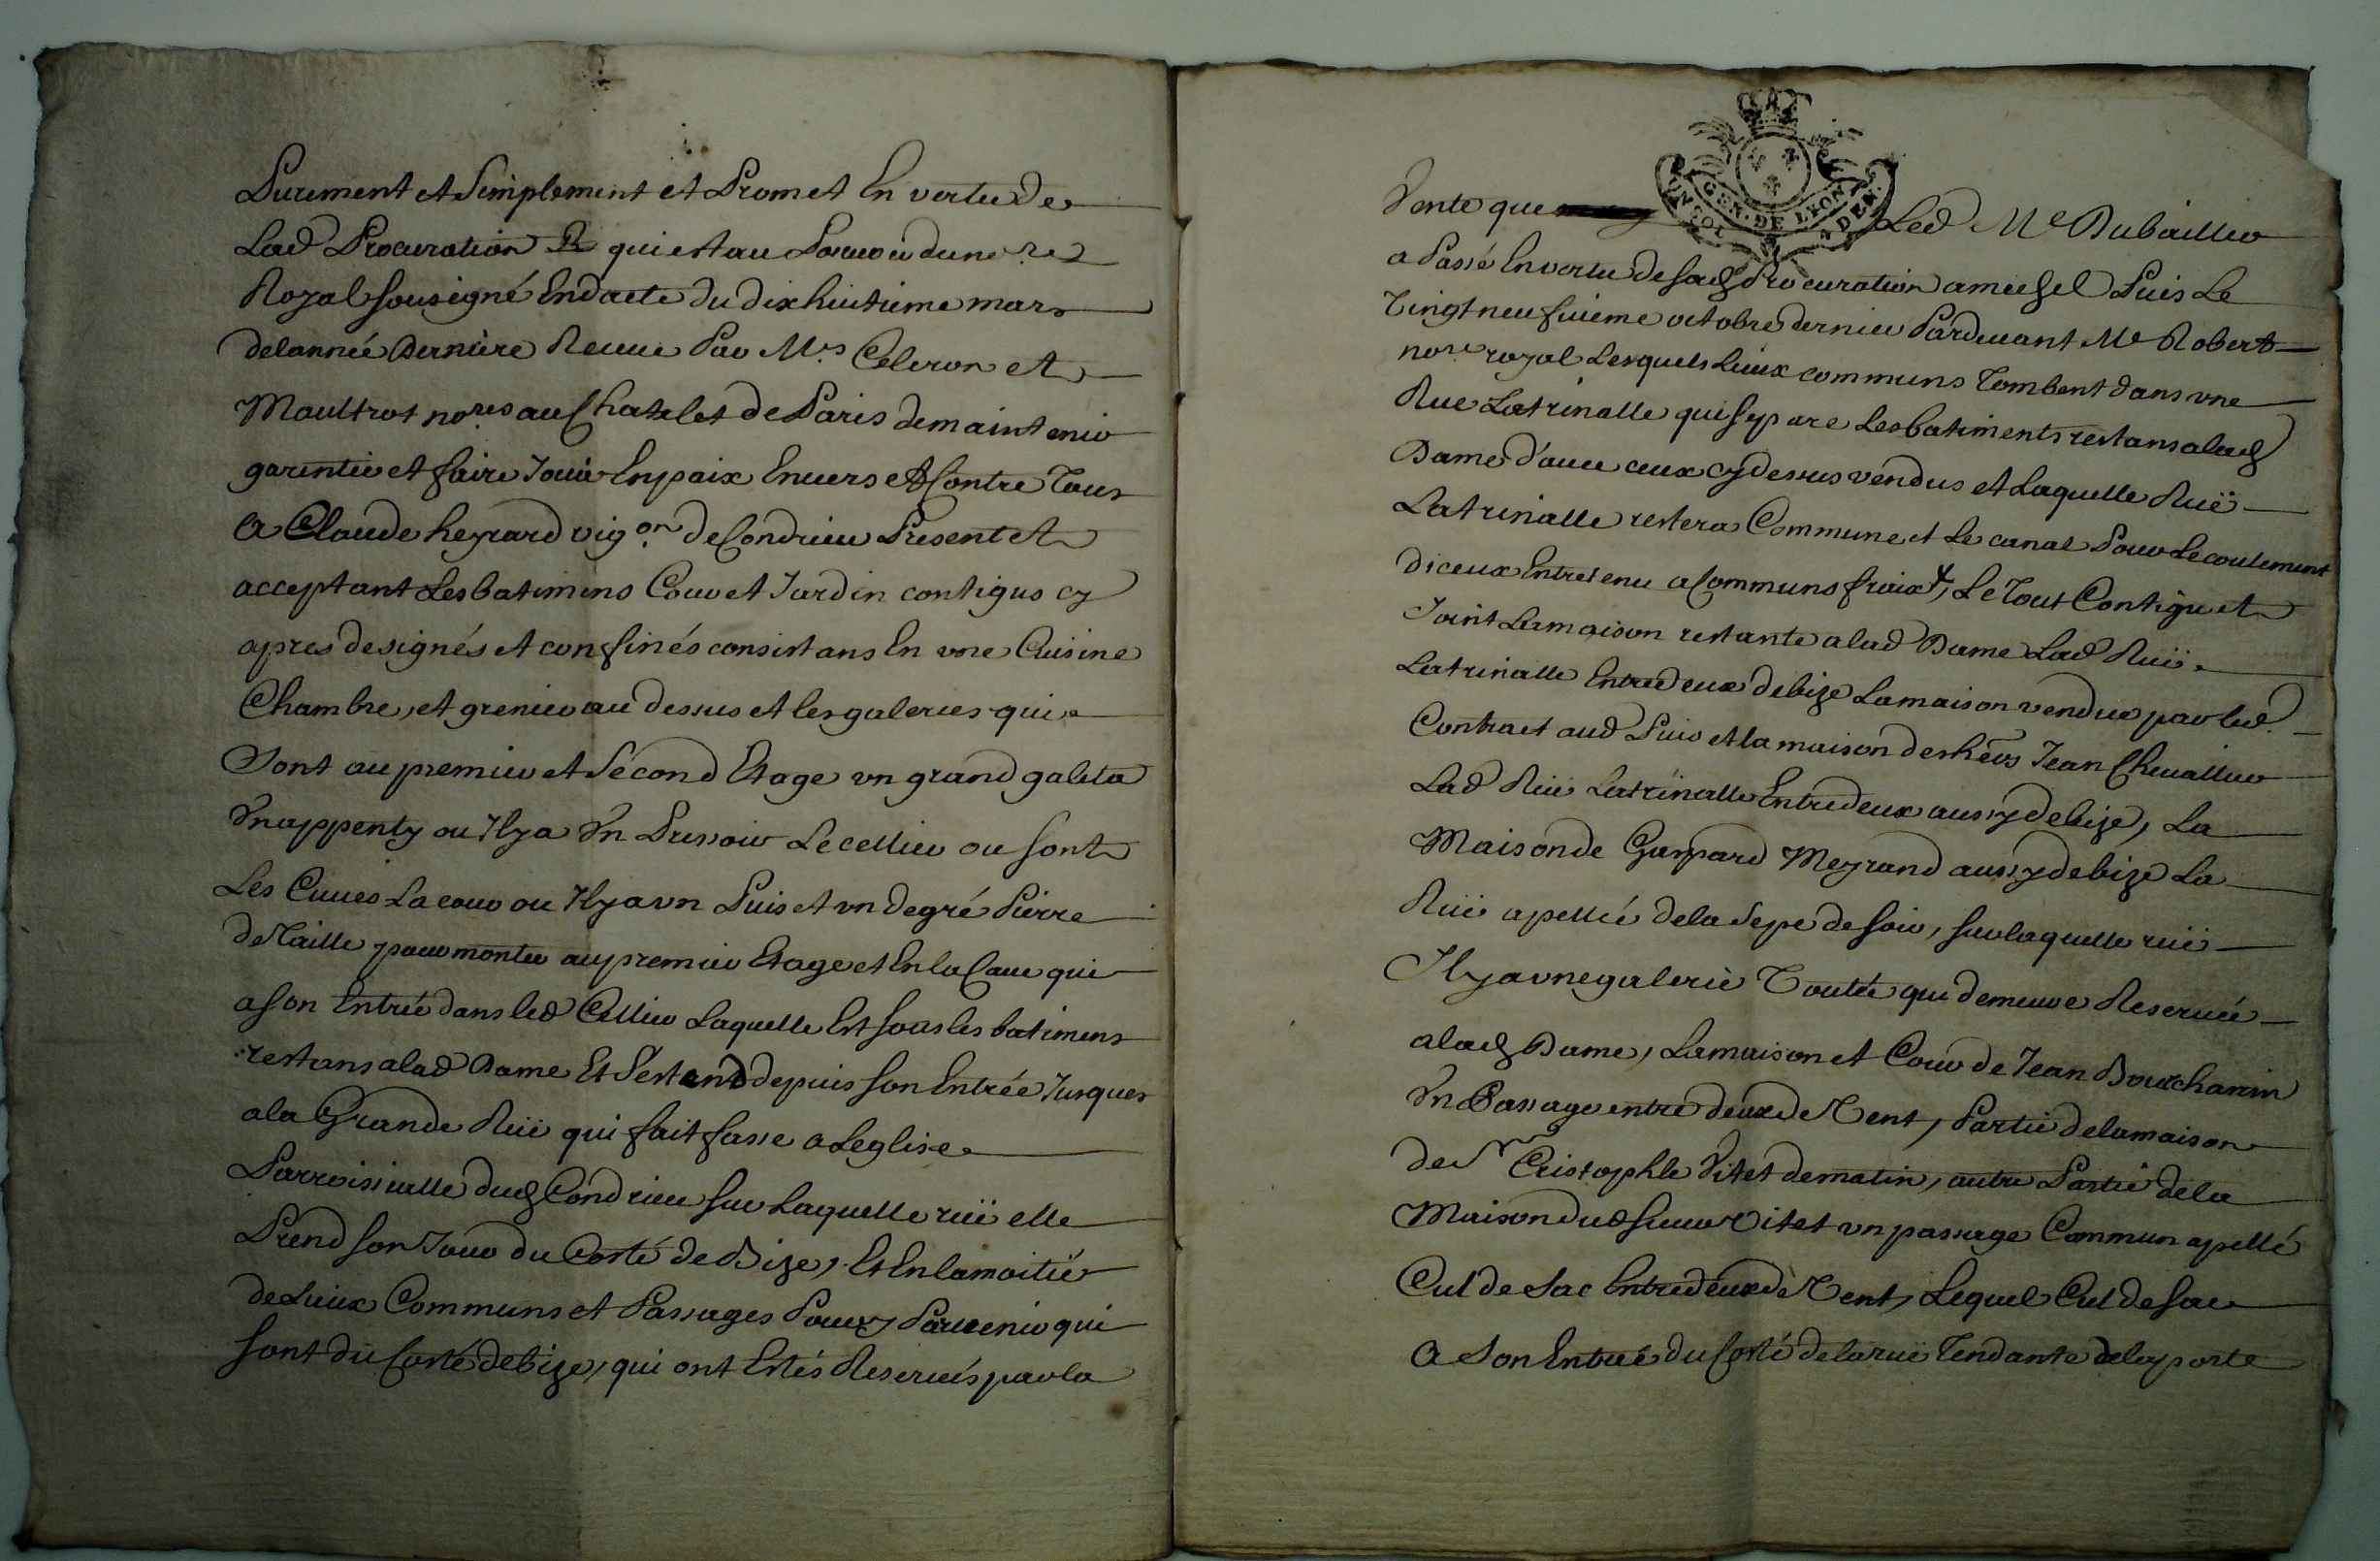 Purement et Simplement et Promet En vertu de
Lad Procuration qui est au Pouvoir du no.re
Royal Sousigné En datte du dix huitieme mars
de lannée Derniere Receue Par M.rs Celeron et
Maultrot no.res au Chatelet de Paris de maintenir
garentir et faire Jouir En paix Envers et Contre Tous
a Claude heyrard vig.on de Condrieu Present et
acceptant Les batimens Cour et Jardin contigus cy
apres designés et confinés consistans En vne Cuisine
Chambre, et grenier au dessus et les galeries qui
Sont au premier et Sécond Etage vn grand galeta
Vn appenty ou Il y a Vn Pressoir Le cellier ou sont
Les Cuues La cour ou Il y a vn Puis et vn degré Pierre
de Taille pour monter au premier Etage et En la Caue qui
a son Entrée dans led Cellier Laquelle Est sous les batimens
restans a lad Dame Et S'estend depuis son Entrée Jusques
a la Grande Rüe qui fait fasse a Leglise
Parroissialle dud Condrieu sur Laquelle rüe elle
Prend son Jour du Costé de Bize, Et En la moitié
de Lieux Communs et Passages Pour y Parvenir qui
sont du Costé de bize, qui ont Estés Reservés par la
GEN. DE LYON
Vente que Led Me Dubaillier
a Passé En vertu de sad Procuration a Puis Le
Vingt neufuieme octobre dernier Pardeuant Me Robert
no.re royal Lesquels Lieux communs Tombent dans vne
Rue Latrinalle qui separe Les batiments restans a lad
Dame d'auec ceux cy dessus vendus et Laquelle Rüe
Latrinalle restera Commune et Le canal Pour Lecoulement
diceux Entretenu a Communs fraix, Le Tout Contigu et
Joint La maison restante a lad Dame Lad Rüe
Latrinalle Entre deux de bize La maison vendue par led
Contract aud Puis et la maison des hers Jean Cheuallier
Lad Rüe Latrinalle Entre deux aussy de bize, La
Maison de Gaspard Meyrand aussy de bize La
Rüe apellée de la Sepe de soir, sur laquelle rüe
Il y a vne galerie Voutée qui demeure Reseruée
a lad Dame, La maison et Cour de Jean Bouchanin
Vn Passage entre deux de Vent, Partie de la maison
de Sr Cristophle Vitet de matin, autre Partie de la
Maison dud sieur Vitet vn passage Commun apellé
Cul de Sac Entre deux de Vent, Lequel Cul de sac
a Son Entrée du Costé de la rüe Tendante de la porte